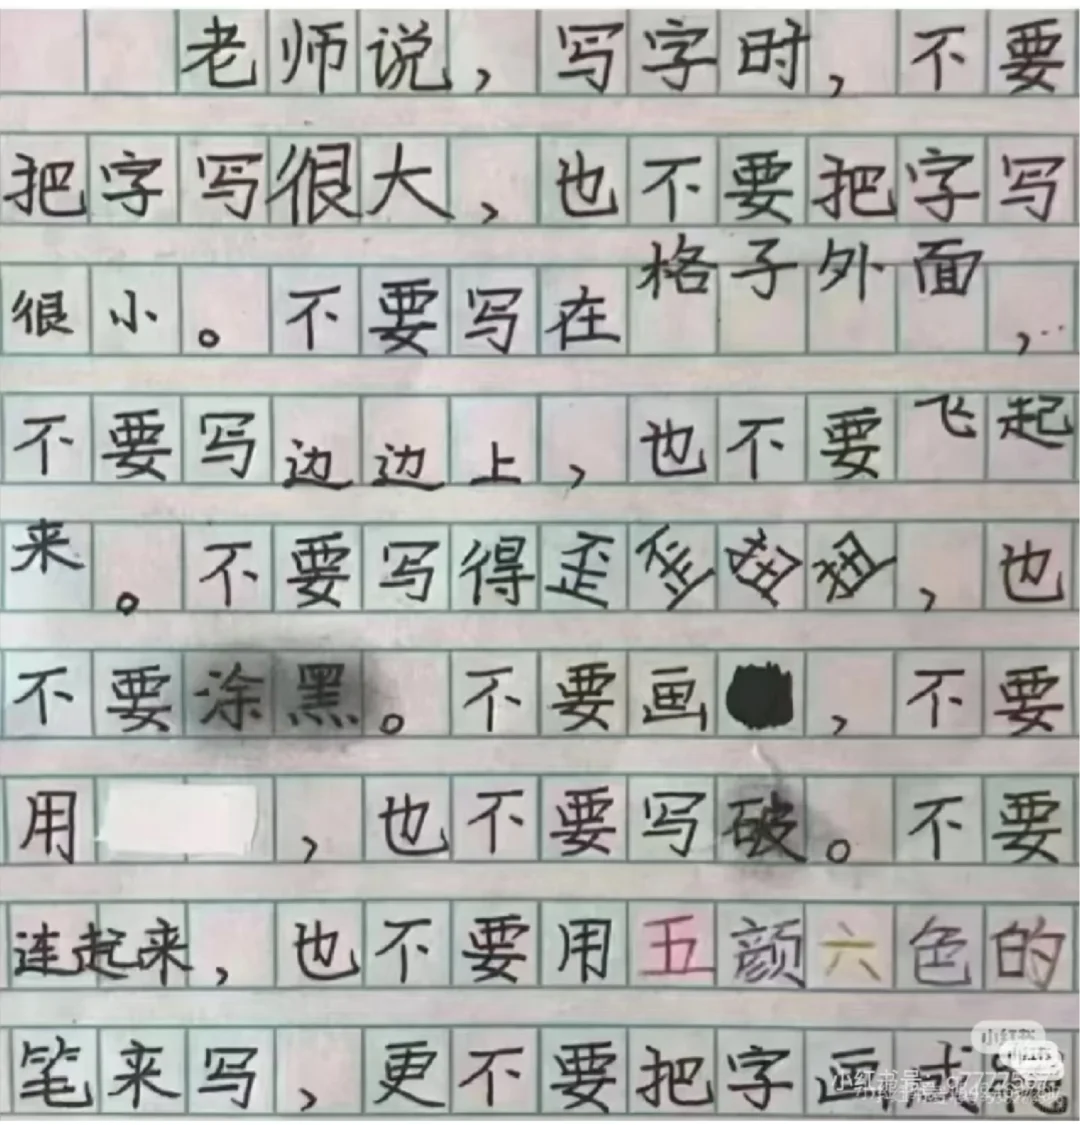 老师说，写字时，不要
把字写很大，也不要把字写
很小。不要写在格子外面，
不要写边边上，也不要飞起
来。不要写得歪歪扭扭，也
不要涂黑。不要画，不要
用，也不要写破。不要
连起来，也不要用五颜六色的
笔来写，更不要把字画成
小红书
小红书号：